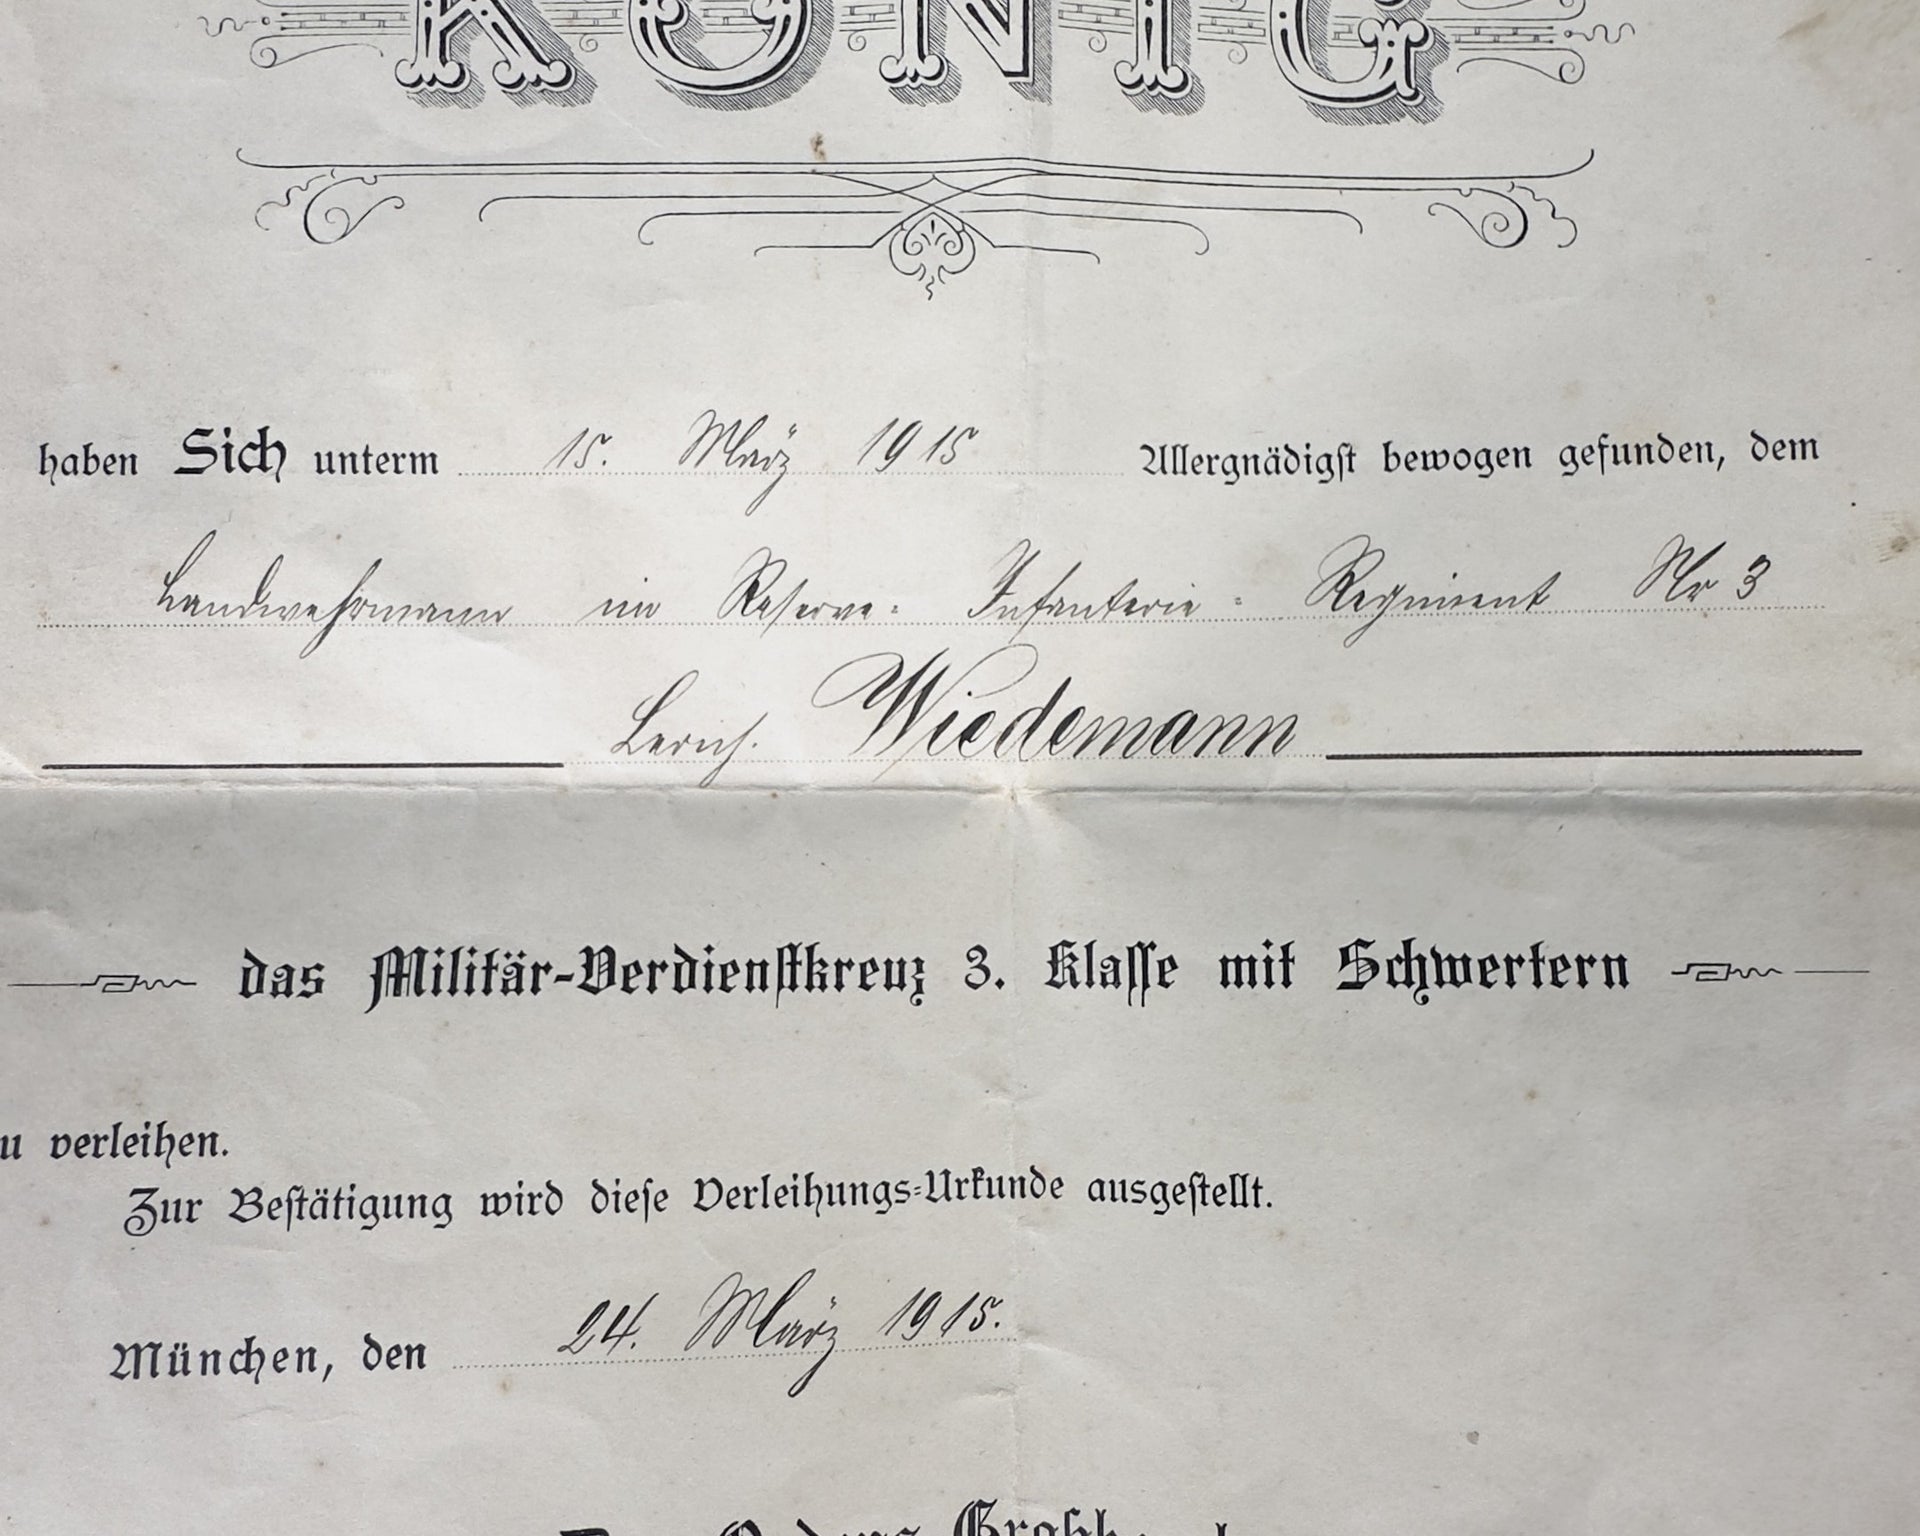 KÖNIG
haben Sich unterm 15. März 1915 Allergnädigst bewogen gefunden, dem
Landwehrmann im Reserve= Infanterie= Regiment Nr 3
Wiedemann
das Militär-Verdienstkreuz 3. Klasse mit Schwertern
u verleihen.
Zur Bestätigung wird diese Verleihungs=Urkunde ausgestellt.
München, den 24. März 1915.